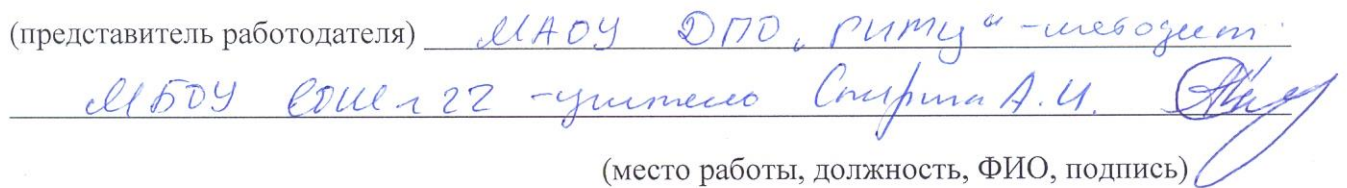 (представитель работодателя) МАОУ ДПО „РИМЦ“ - методист
МБОУ СОШ № 22 - учитель Спирина А.И.
(место работы, должность, ФИО, подпись)